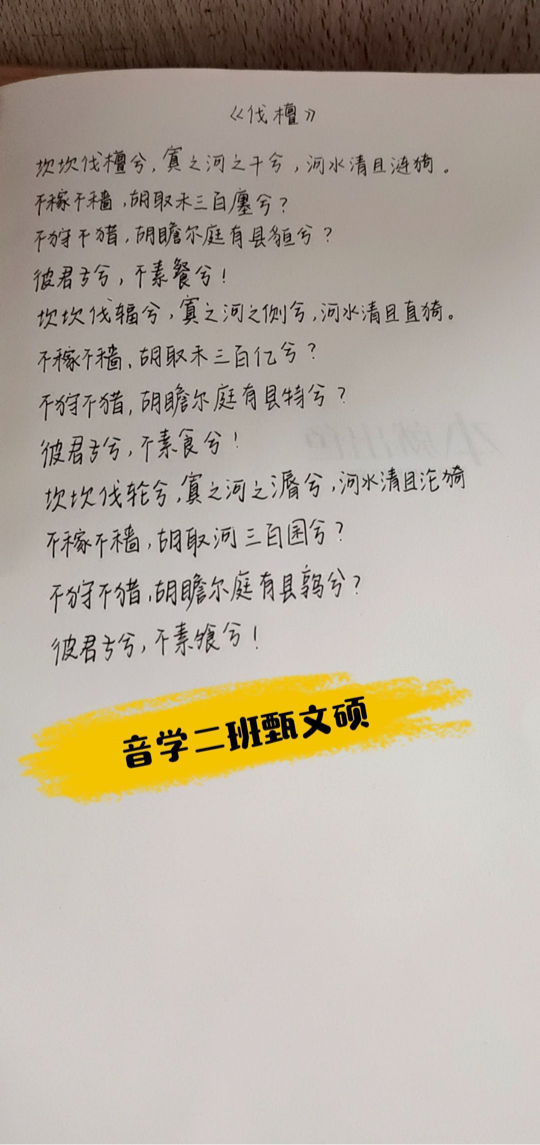 《伐檀》
坎坎伐檀兮，寘之河之干兮，河水清且涟猗。
不稼不穑，胡取禾三百廛兮？
不狩不猎，胡瞻尔庭有县貆兮？
彼君子兮，不素餐兮！
坎坎伐辐兮，寘之河之侧兮，河水清且直猗。
不稼不穑，胡取禾三百亿兮？
不狩不猎，胡瞻尔庭有县特兮？
彼君子兮，不素食兮！
坎坎伐轮兮，寘之河之漘兮，河水清且沦猗
不稼不穑，胡取河三百囷兮？
不狩不猎，胡瞻尔庭有县鹑兮？
彼君子兮，不素飧兮！
音学二班甄文硕